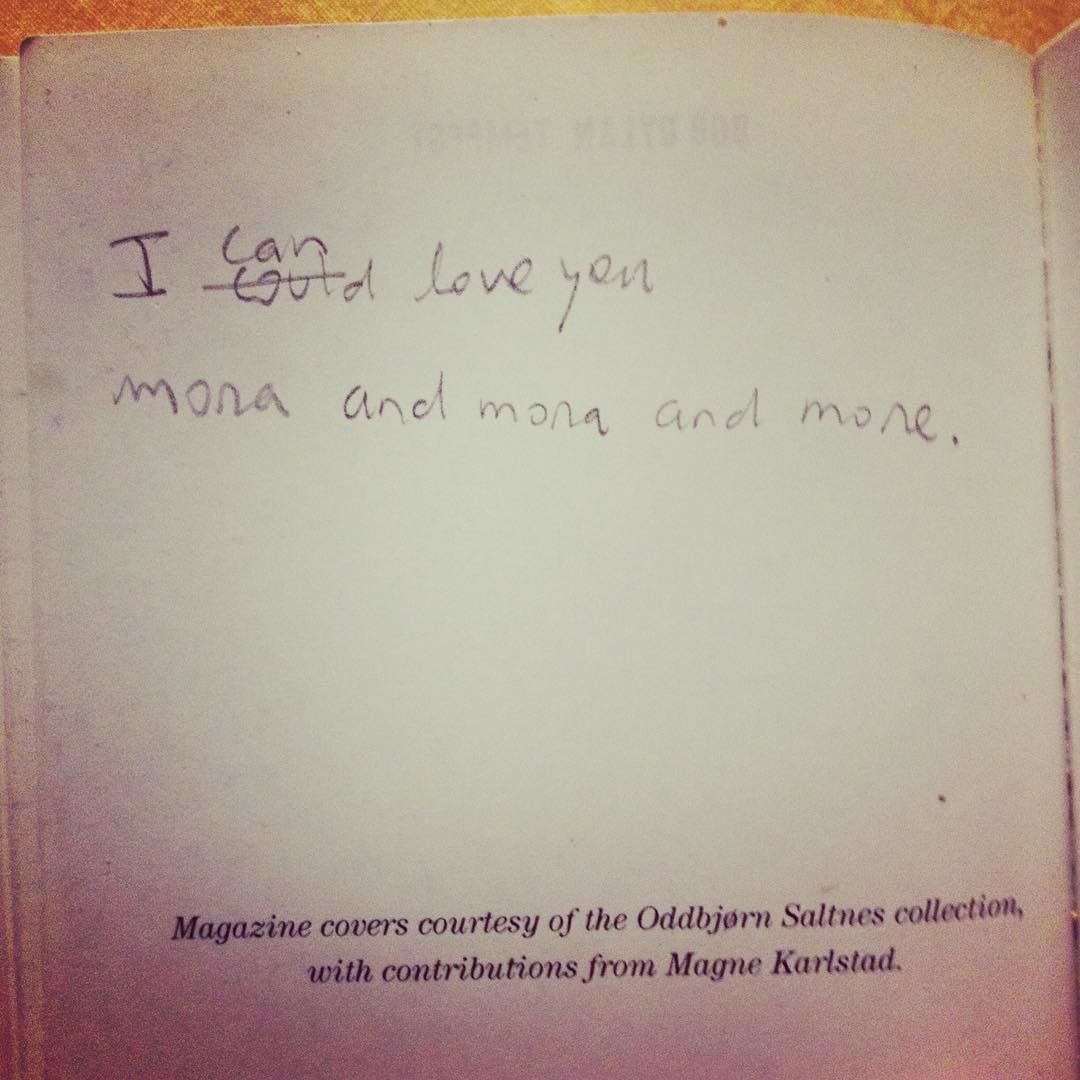 I can could love you
mora and mora and more.
Magazine covers courtesy of the Oddbjørn Saltnes collection,
with contributions from Magne Karlstad.